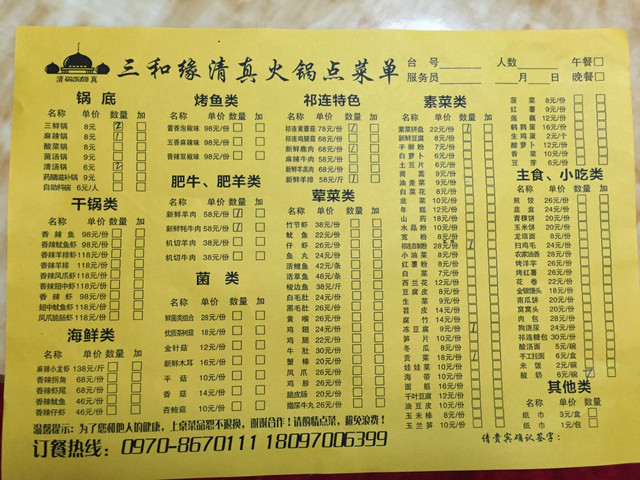 清真
三和缘清真火锅点菜单
台号
人数
午餐
服务员
月 日
晚餐
锅底
名称 单价 数量 加
三鲜锅 8元 2
麻辣锅 8元 1
酸菜锅 9元
菌汤锅 9元
清汤锅 6元 2
药膳滋补锅 9元
自助料碗 6元/人
干锅类
名称 单价 数量 加
香辣鱼 98元/份
香辣鱿鱼虾 98元/份
香辣羊排虾 118元/份
香辣羊排 118元/份
香辣凤爪虾 118元/份
香辣翅中虾 118元/份
香辣虾 98元/份
翅中鱿鱼虾 118元/份
凤爪脆肠虾 118元/份
海鲜类
名称 单价 数量 加
麻辣小龙虾 138元/斤
香辣拐鱼 68元/份
香辣虾尾 68元/份
香辣鱿鱼 46元/份
香辣仔虾 46元/份
烤鱼类
名称 单价 数量 加
酱香泡椒味 98元/份
五香麻辣味 98元/份
香辣双椒味 98元/份
肥牛、肥羊类
名称 单价 数量 加
新鲜羊肉 58元/份 1
新鲜牦牛肉 58元/份 1
机切羊肉 38元/份
机切牛肉 38元/份
菌类
名称 单价 数量 加
鲜菌类组合 28元/份
优质茶树菇 18元/份
金针菇 12元/份
新鲜木耳 16元/份
平菇 10元/份
香菇 14元/份
杏鲍菇 10元/份
祁连特色
名称 单价 数量 加
祁连黄蘑菇 78元/份 1
祁连鸡腿菇 28元/份
新鲜鹿肉 68元/份 1
麻辣牛肉 58元/份
新鲜羊羔肉 68元/份
新鲜羊排 58元/斤 1
荤菜类
名称 单价 数量 加
竹节虾 38元/份
鱿鱼 22元/份
仔虾 26元/份
鱼丸 24元/份
活鲤鱼 42元/条
活草鱼 46元/条
梭边鱼 38元/斤
白毛肚 24元/份
黑毛肚 26元/份
黄喉 26元/份
鸡翅 24元/份
鸭肠 22元/份
牛肚 30元/份
蟹棒 20元/份
凤爪 24元/份
鸡胗 26元/份
脆皮肠 20元/份
撒尿牛丸 26元/份
素菜类
名称 单价 数量 加
素菜拼盘 22元/份 1
新鲜豆腐 8元/份
手擀粉 7元/份
白萝卜 7元/份
土豆片 6元/份
茼蒿 9元/份
油麦菜 9元/份
白菜花 8元/份
韭菜 10元/份
年糕 12元/份
山药 18元/份
水晶粉 10元/份
宽粉 8元/份
祁连自制粉 28元/份 1
小油菜 8元/份
红薯粉 8元/份
白菜 7元/份
西兰花 12元/份
豆腐皮 8元/份
生菜 9元/份
苕皮 14元/份
腐竹 14元/份
冻豆腐 9元/份 1
笋片 10元/份
冬瓜 8元/份
贡菜 18元/份 1
娃娃菜 10元/份
海带 10元/份
面筋 16元/份
千叶豆腐 12元/份
油豆皮 10元/份
玉米棒 8元/份
玉兰笋 10元/份
菠菜 8元/份
莲菜 9元/份
莲藕 12元/份
鹌鹑蛋 16元/份
生鸡蛋 2元/个
酸萝卜 12元/份
香菜 10元/份
豆芽 6元/份
主食、小吃类
名称 单价 数量 加
煎饺 26元/份
韭盒 24元/份
青稞饼 20元/份
玉米饼 20元/份
龙眼肉 22元/份
扫鸡毛 24元/份
农家油香 28元/份
烤洋芋 26元/份
烤红薯 26元/份
花卷 22元/份
金银馒头 18元/份
南瓜饼 20元/份
窝窝头 20元/份
肉包 28元/份
狗浇尿 24元/份
祁连糖包 30元/份
酸汤面 5元/碗
手工拉面 6元/盒
米饭 2元/碗
酸奶 8元/碗
其他类
名称 单价 数量 加
纸巾 3元/盒
纸巾 1元/包
温馨提示：为了您和他人的健康，上桌菜品恕不退换，谢谢合作！请酌情点菜，避免浪费！
订餐热线：0970-8670111 18097006399
请贵宾确认签字：